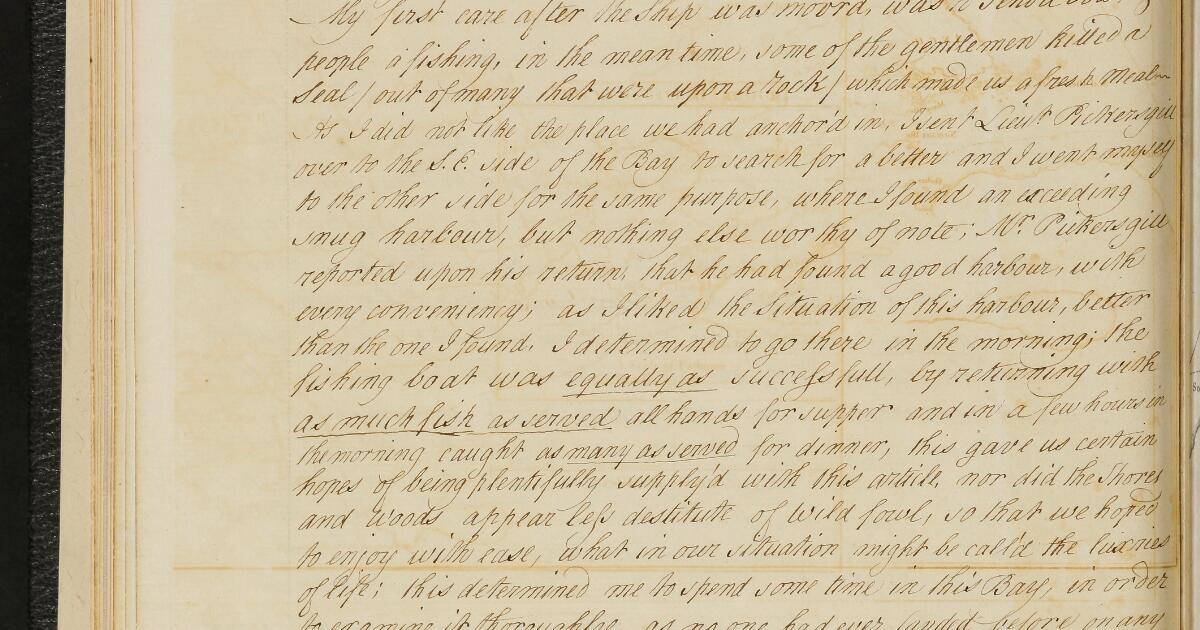 My first care after the Ship was moord, was to send a boat &
people a fishing, in the mean time, some of the gentlemen killed a
Seal / out of many that were upon a rock / which made us a fresh meal
As I did not like the place we had anchor'd in, I sent Lieut Pickersgill
over to the S.E. side of the Bay to search for a better and I went myself
to the other side for the same purpose, where I found an exceeding
snug harbour, but nothing else worthy of note; Mr. Pickersgill
reported upon his return, that he had found a good harbour, with
every conveniency; as I liked the Situation of this harbour, better
than the one I found, I determined to go there in the morning; the
fishing boat was equally as Successfull, by returning with
as much fish as served all hands for supper and in a few hours in
the morning caught as many as served for dinner, this gave us certain
hopes of being plentifully supply'd with this article, nor did the Shores
and woods appear less destitute of wild fowl, so that we hoped
to enjoy with ease, what in our situation might be call'd the luxries
of life; this determined me to spend some time in this Bay, in order
to examine it thoroughly, as no one had ever landed before on any